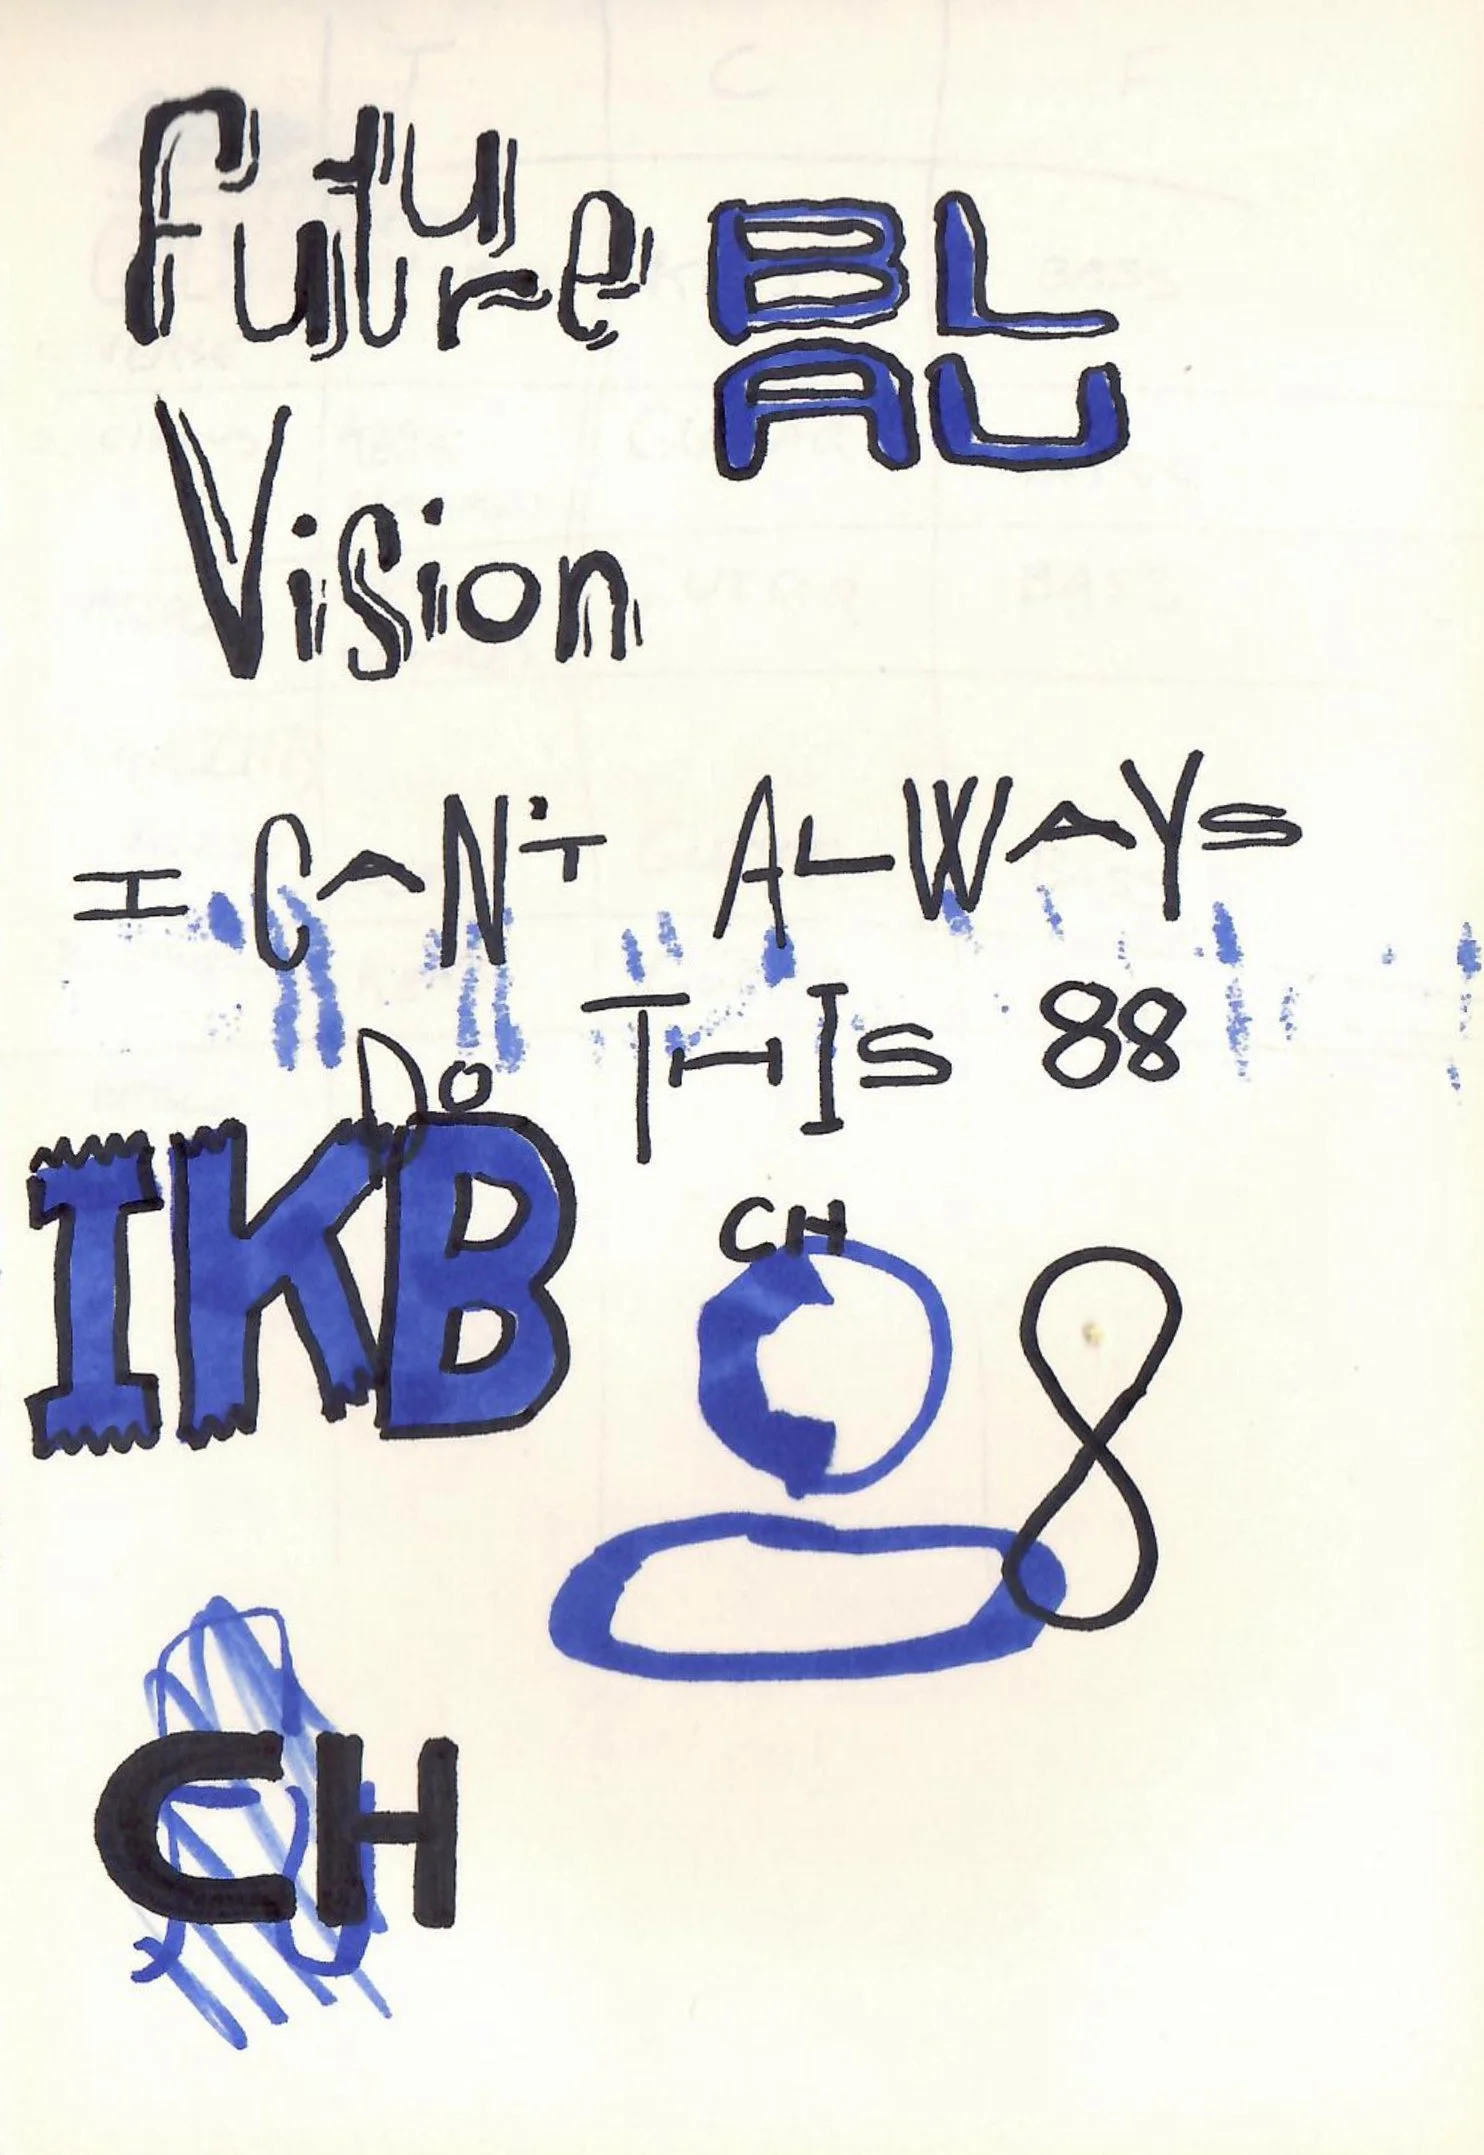 Future
BL
AU
Vision
I CAN'T ALWAYS
DO THIS 88
IKB
CH
8
CH